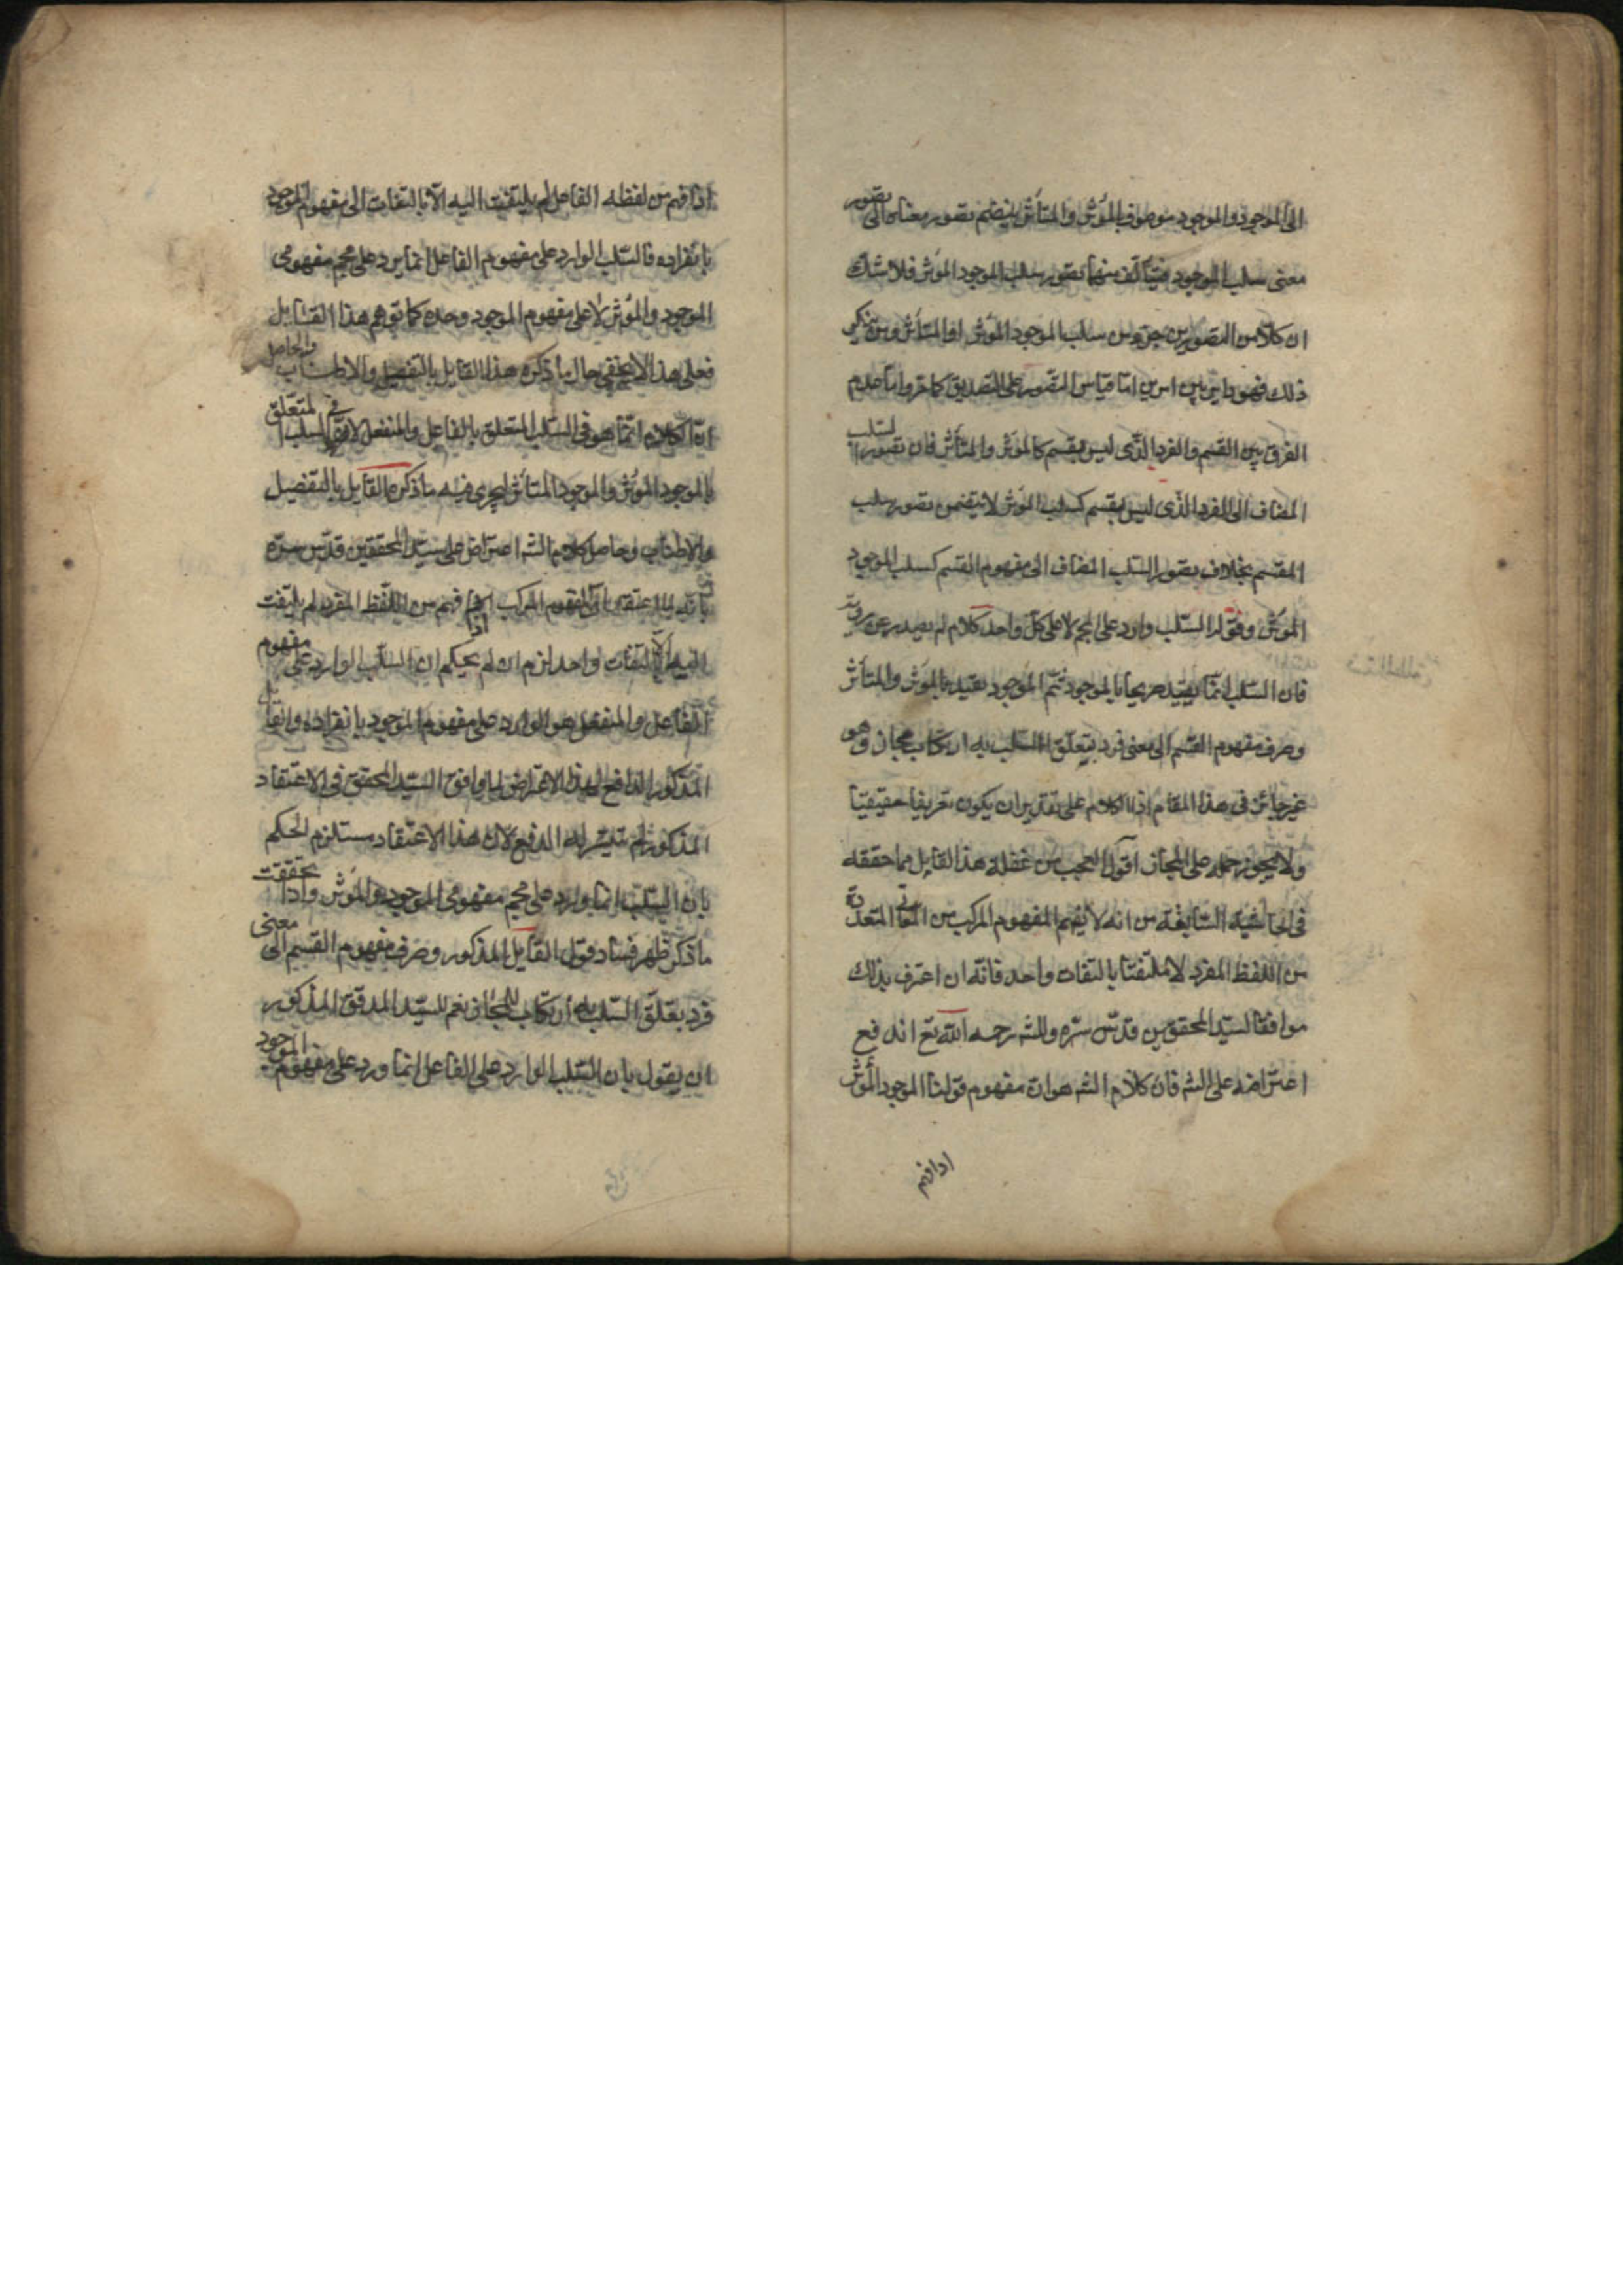 الى الموجود والموجود موصوف المؤثر والمتأثر ينضم تصور معناه الى تصور
معنى سلب الموجود فيتألف منهما تصور سلب الموجود المؤثر فلا شك
ان كلا من التصورين جزء من سلب الموجود المؤثر او المتأثر ومن ينكر
ذلك فهو دائر بين امرين اما قياس التصور على التصديق كما مر واما عدم
الفرق بين القسم والفرد الذى ليس بقسم كالمؤثر والمتأثر فان تصور السلب
المضاف الى الفرد الذى ليس بقسم كسلب المؤثر لا يتضمن تصور سلب
المقسم بخلاف تصور السلب المضاف الى مفهوم القسم كسلب الموجود
المؤثر وقوله السلب وارد على المجموع لا على كل واحد كلام لم يصدر عن روية
فان السلب انما يقيد صريحا بالموجود ثم الموجود يقيد بالمؤثر والمتأثر
وصرف مفهوم القسم الى معنى فرد يتعلق السلب به ارتكاب مجاز وهو
غير جائز فى هذا المقام اذ الكلام على تقدير ان يكون تعريفا حقيقيا
ولا يجوز حمله على المجاز اقول العجب من غفلة هذا القايل مما حققه
فى الحاشية السابقة من انه لا يفهم المفهوم المركب من المعانى المتعددة
من اللفظ المفرد الا ملتفتا بالتفات واحد فانه ان اعترف بذلك
موافقا لسيد المحققين قدس سره وللشه رحمه الله تع اندفع
اعتراضه على الشه فان كلام الشه هو ان مفهوم قولنا الموجود المؤثر
اذا فهم
اذا فهم من لفظه الفاعل لم يلتفت اليه الا بالتفات الى مفهوم الموجود
بانفراده فالسلب الوارد على مفهوم الفاعل انما يرد على مجموع مفهومى
الموجود والمؤثر لا على مفهوم الموجود وحده كما توهم هذا القايل
فعلى هذا لا يخفى حال ما ذكره هذا القايل بالتفصيل والاطناب والحاصل
ان الكلام انما هو فى السلب المتعلق بالفاعل والمنفعل لا فى السلب المتعلق
بالموجود المؤثر والموجود المتأثر ليجرى فيه ما ذكره القايل بالتفصيل
والاطناب وحاصل كلام الشه اعتراض على سيد المحققين قدس سره
بانه لما اعتقد بان المفهوم المركب اذا فهم من اللفظ المفرد لم يلتفت
اليه الا بالتفات واحد لزم ان لم يحكم ان السلب الوارد على مفهوم
الفاعل والمنفعل هو الوارد على مفهوم الموجود بانفراده
المذكور الدافع لهذا الاعتراض لما وافق السيد المحقق فى الاعتقاد
المذكور لم يتيسر له الدفع لان هذا الاعتقاد مستلزم الحكم
بان السلب انما وارد على مجموع مفهومى الموجود والمؤثر واذا تحققت
ما ذكر ظهر فساد قول القايل المذكور وصرف مفهوم القسم الى معنى
فرد يتعلق السلب به ارتكاب للمجاز نعم للسيد المدقق المذكور
ان يقول بان السلب الوارد على الفاعل انما ورد على مفهوم الموجود